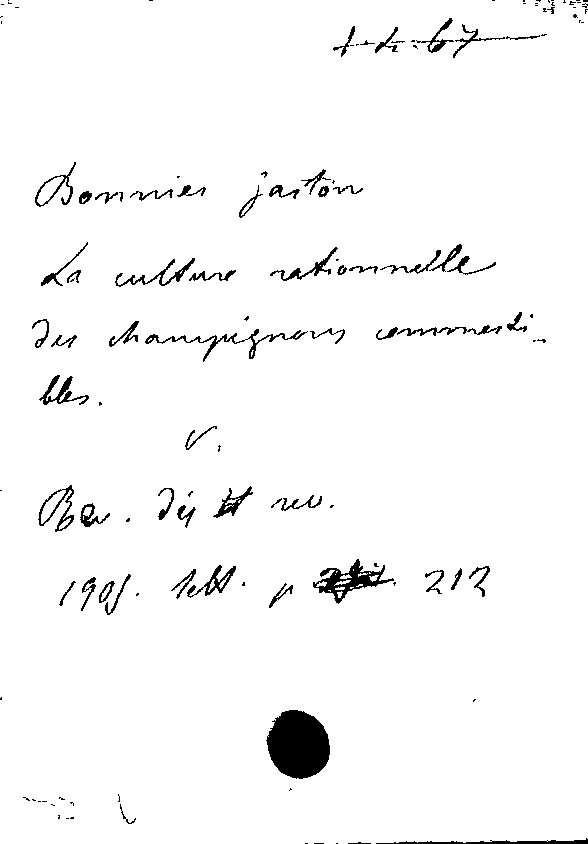 1.4.67
Bonnier gaston
La culture rationnelle
des champignons commesti-
bles.
V.
Rev. des rev.
1905. sett. p 212